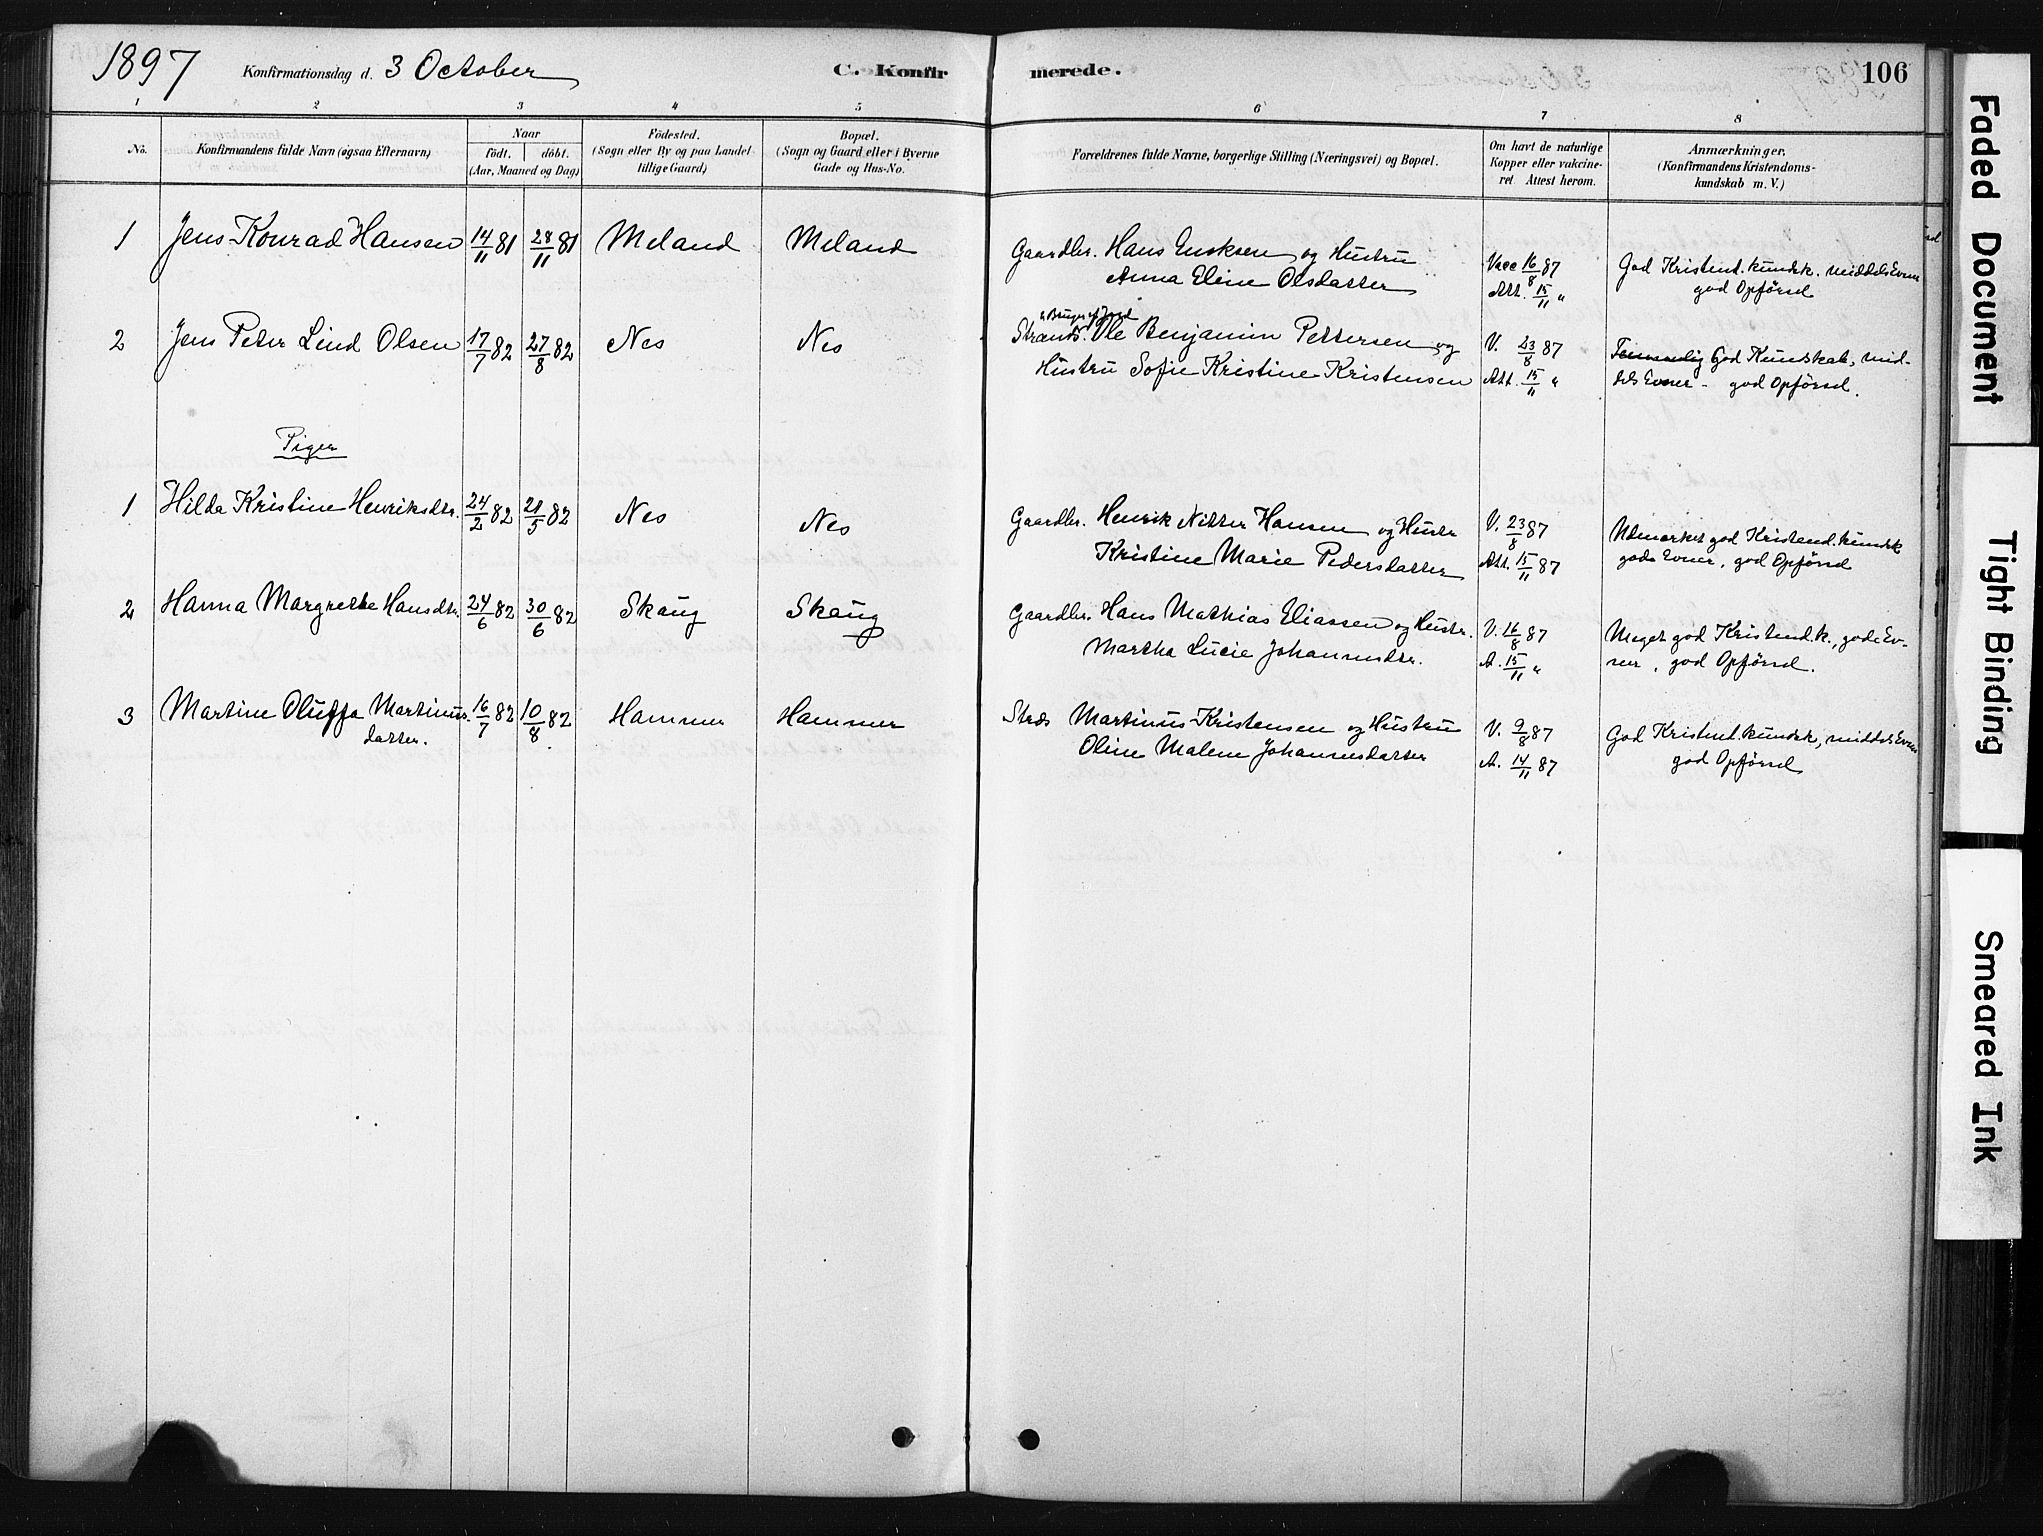 1897 Konfirmationsdag d. 3 October C. Konfirmerede. 106
1 2 3 4 5 6 7 8
No. Konfirmandens fulde Navn (ogsaa Efternavn) Naar födt. döbt. (Aar, Maaned og Dag) Födested. (Sogn eller By og paa Landet tillige Gaard) Bopæl. (Sogn og Gaard eller i Byerne Gade og Hus-No. Forældrenes fulde Navne, borgerlige Stilling (Næringsvei) og Bopæl. Om havt de naturlige Kopper eller vakcineret Attest herom. Anmærkninger, (Konfirmandens Kristendomskundskab m. V.)
1 Jens Konrad Hansen 14/11 81 28/11 81 Meland Meland Gaardbr. Hans Enoksen og Hustru Vacc 16/8 87 God Kristend.kundsk. middels Evner
Anna Eline Olsdatter Att. 15/11 " god Opförsel
2 Jens Peter Lind Olsen 17/7 82 27/8 82 Nes Nes Strands. Ole Benjamin Pettersen og V. 23/8 87 God Kundskab, mid-
Hustru Sofie Kristine Kristensen Att. 15/11 " dels Evner - god Opförsel.
Piger
1 Hilda Kristine Henriksdtr. 24/2 82 21/5 82 Nes Nes Gaardbr. Henrik Nitter Hansen og Hustr V. 23/8 87 Udmerket god Kristend.kundsk
Kristine Marie Pedersdatter Att. 15/11 87 gode Evner, god Opförsel
2 Hanna Margrethe Hansdtr. 24/6 82 30/6 82 Skaug Skaug Gaardbr. Hans Mathias Eliassen og Hustr. V. 16/8 87 Meget god Kristend.k., gode Ev-
Martha Lucie Johannesdtr. A. 15/11 " ner, god Opförsel.
3 Martine Oluffa Martinus- 16/7 82 10/8 82 Hammer Hammer Strds Martinus Kristensen og Hustru V. 9/8 87 God Kristend.kundsk, middels Evner
datter. Oline Malene Johannesdatter A. 14/11 87 god Opförsel
Faded Document
Tight Binding
Smeared Ink